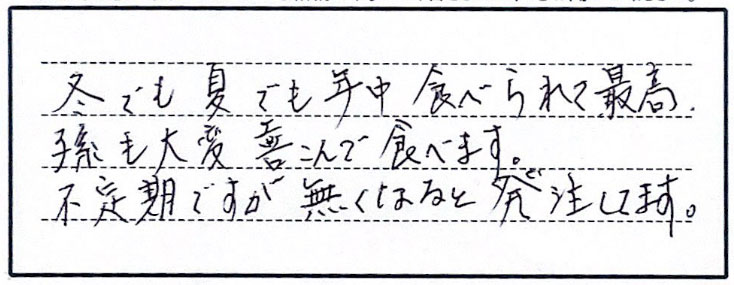 冬でも夏でも年中食べられて最高.
孫も大変喜こんで食べます。
不定期ですが無くなると発注してます。